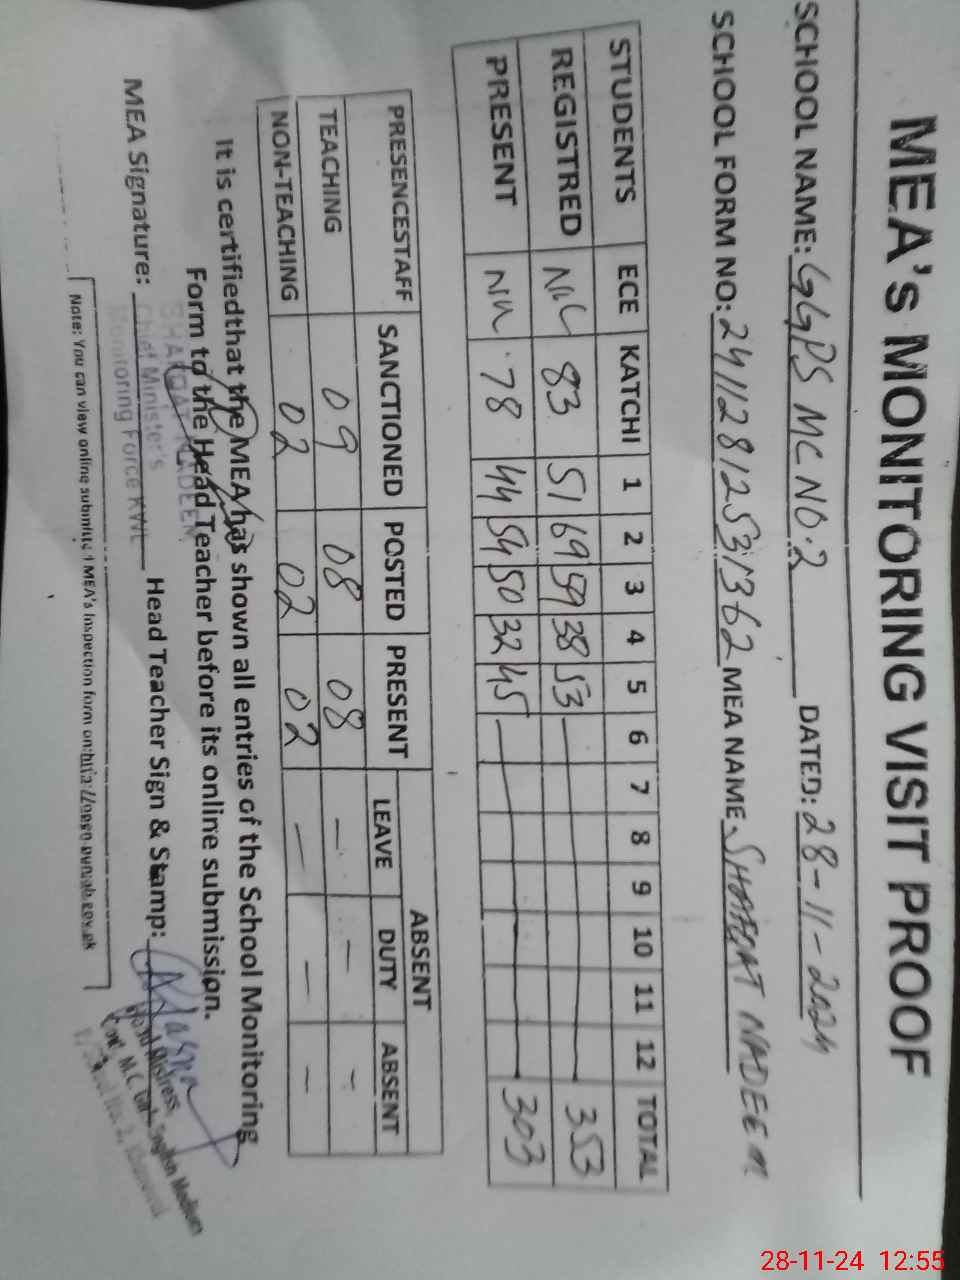 MEA's MONITORING VISIT PROOF
SCHOOL NAME: GGPS MC NO.2 DATED: 28-11-2024
SCHOOL FORM NO: 24112812531362 MEA NAME SHAFQAT NADEEM
STUDENTS ECE KATCHI 1 2 3 4 5 6 7 8 9 10 11 12 TOTAL
REGISTRED NIL 83 51 69 59 38 53 353
PRESENT NIL 78 44 54 50 32 45 303
PRESENCESTAFF SANCTIONED POSTED PRESENT ABSENT
LEAVE DUTY ABSENT
TEACHING 09 08 08 - - -
NON-TEACHING 02 02 02 - - -
It is certifiedthat the MEA has shown all entries of the School Monitoring
Form to the Head Teacher before its online submission.
SHAFQAT NADEEM
Chief Minister's
Monitoring Force KWL
MEA Signature: Head Teacher Sign & Stamp:
Head Mistress
Govt M.C Girls English Medium
School No. 2,
Note: You can view online submitted MEA's Inspection form on:
28-11-24 12:55